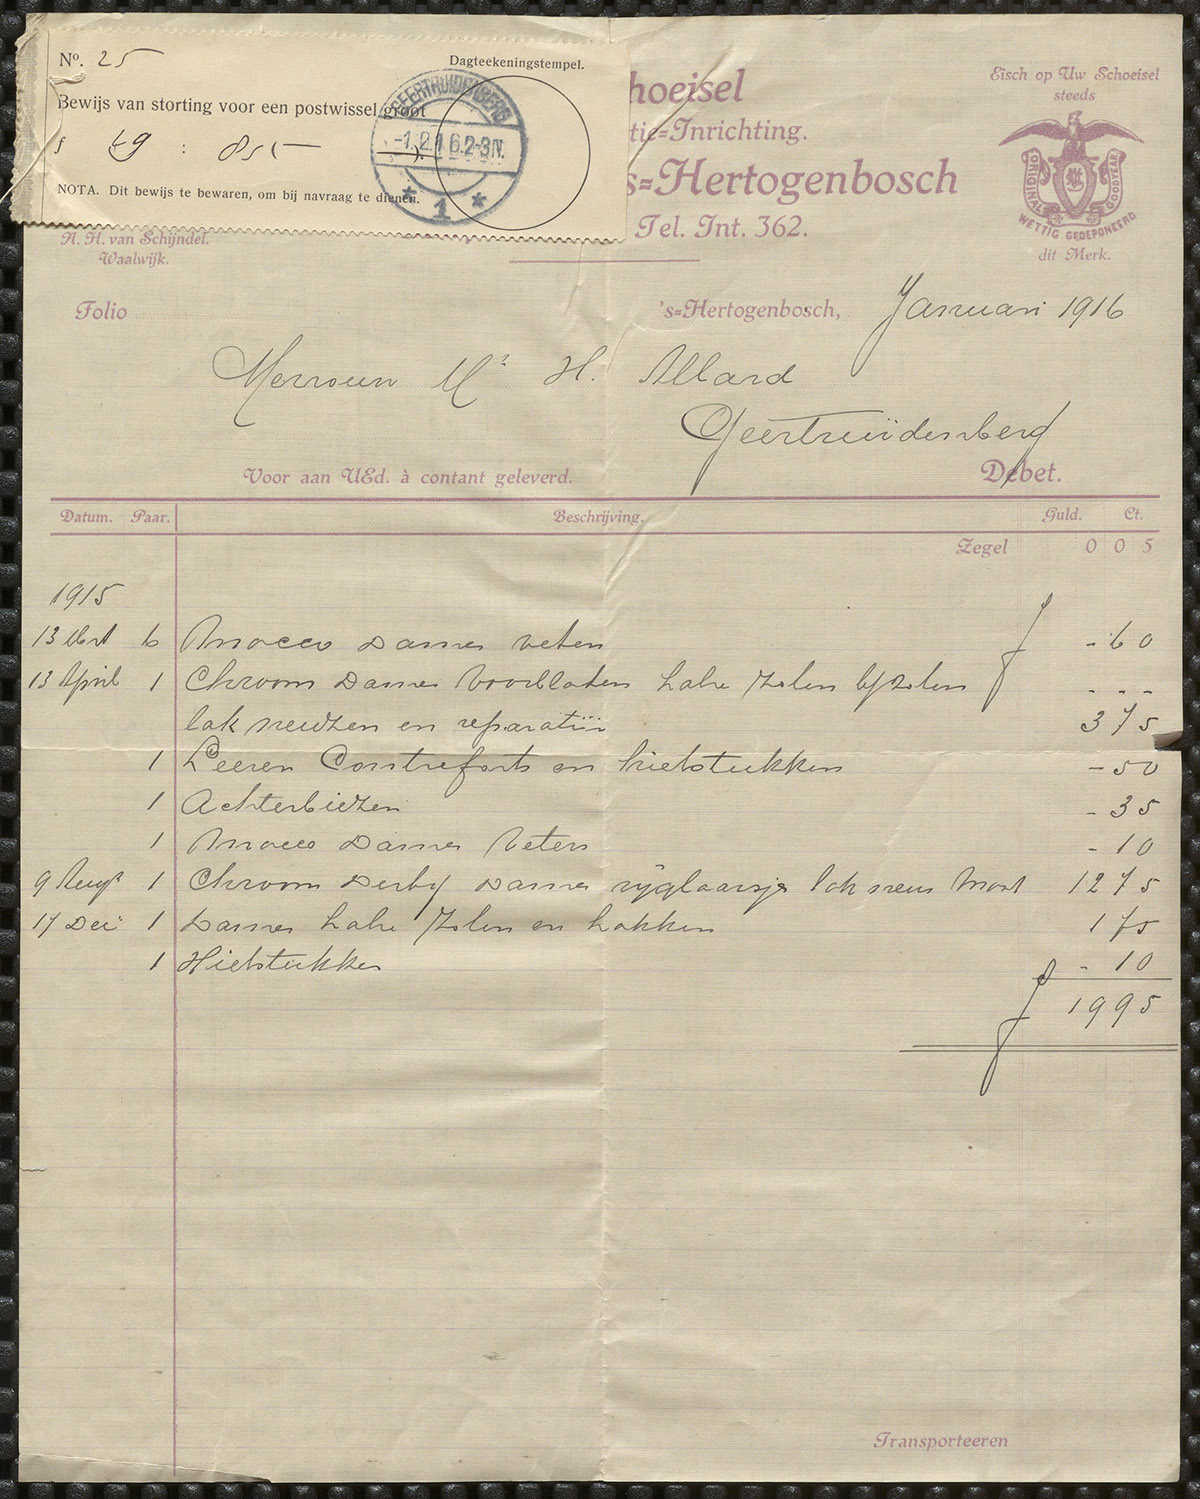 No. 25
Dagteekeningstempel.
Bewijs van storting voor een postwissel groot
f 19 : 855
GEERTRUIDENBERG
-1.2.16.2-3N.
1
NOTA. Dit bewijs te bewaren, om bij navraag te dienen.
hoeisel
tie=Inrichting.
s=Hertogenbosch
Tel. Int. 362.
Eisch op Uw Schoeisel
steeds
ORIGINAL GOODYEAR
WETTIG GEDEPONEERD
dit Merk.
A. H. van Schijndel.
Waalwijk.
Folio
's=Hertogenbosch, Januari 1916
Merrouw Mr H. Allard
Geertruidenberg
Voor aan UEd. à contant geleverd.
Debet.
Datum. Paar. Beschrijving. Guld. Ct.
Zegel 0 0 5
1915
13 Mrt 6 Mocco Dames veters f - 60
13 April 1 Chroom Dames Voorbladen halve zolen - - -
lak neuzen en reparatiën 3 75
1 Leeren Contreforts en hielstukken - 50
1 Achterbiezen - 35
1 Mocco Dames Veters - 10
9 Augt 1 Chroom Derby Dames rijglaarsje lak neus 12 75
17 Dec 1 Dames halve zolen en hakken 1 75
1 Hielstukken - 10
f 19 95
Transporteeren